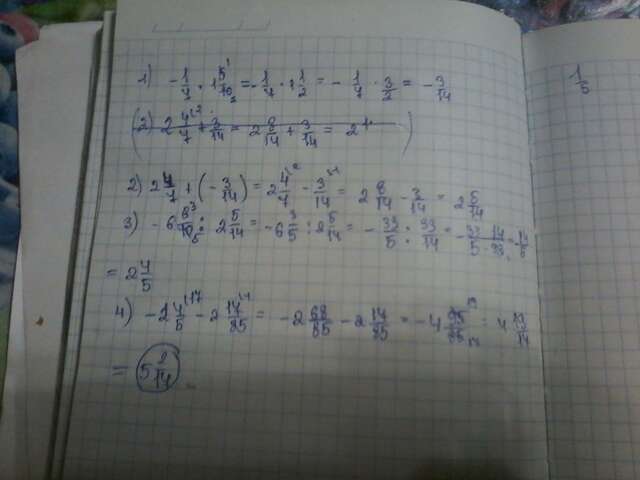 1) -1/7 · 1 5/10 = -1/7 · 1 1/2 = -1/7 · 3/2 = -3/14
1/5
(2) 2 4/7 + 3/14 = 2 8/14 + 3/14 = 2
2) 2 4/7 + (-3/14) = 2 4/7 - 3/14 = 2 8/14 - 3/14 = 2 5/14
3) -6 6/10 : 2 5/14 = -6 3/5 : 2 5/14 = -33/5 : 33/14 = -33·14/5·33 = 14/5
= 2 4/5
4) -2 4/5 - 2 14/85 = -2 68/85 - 2 14/85 =
= 5